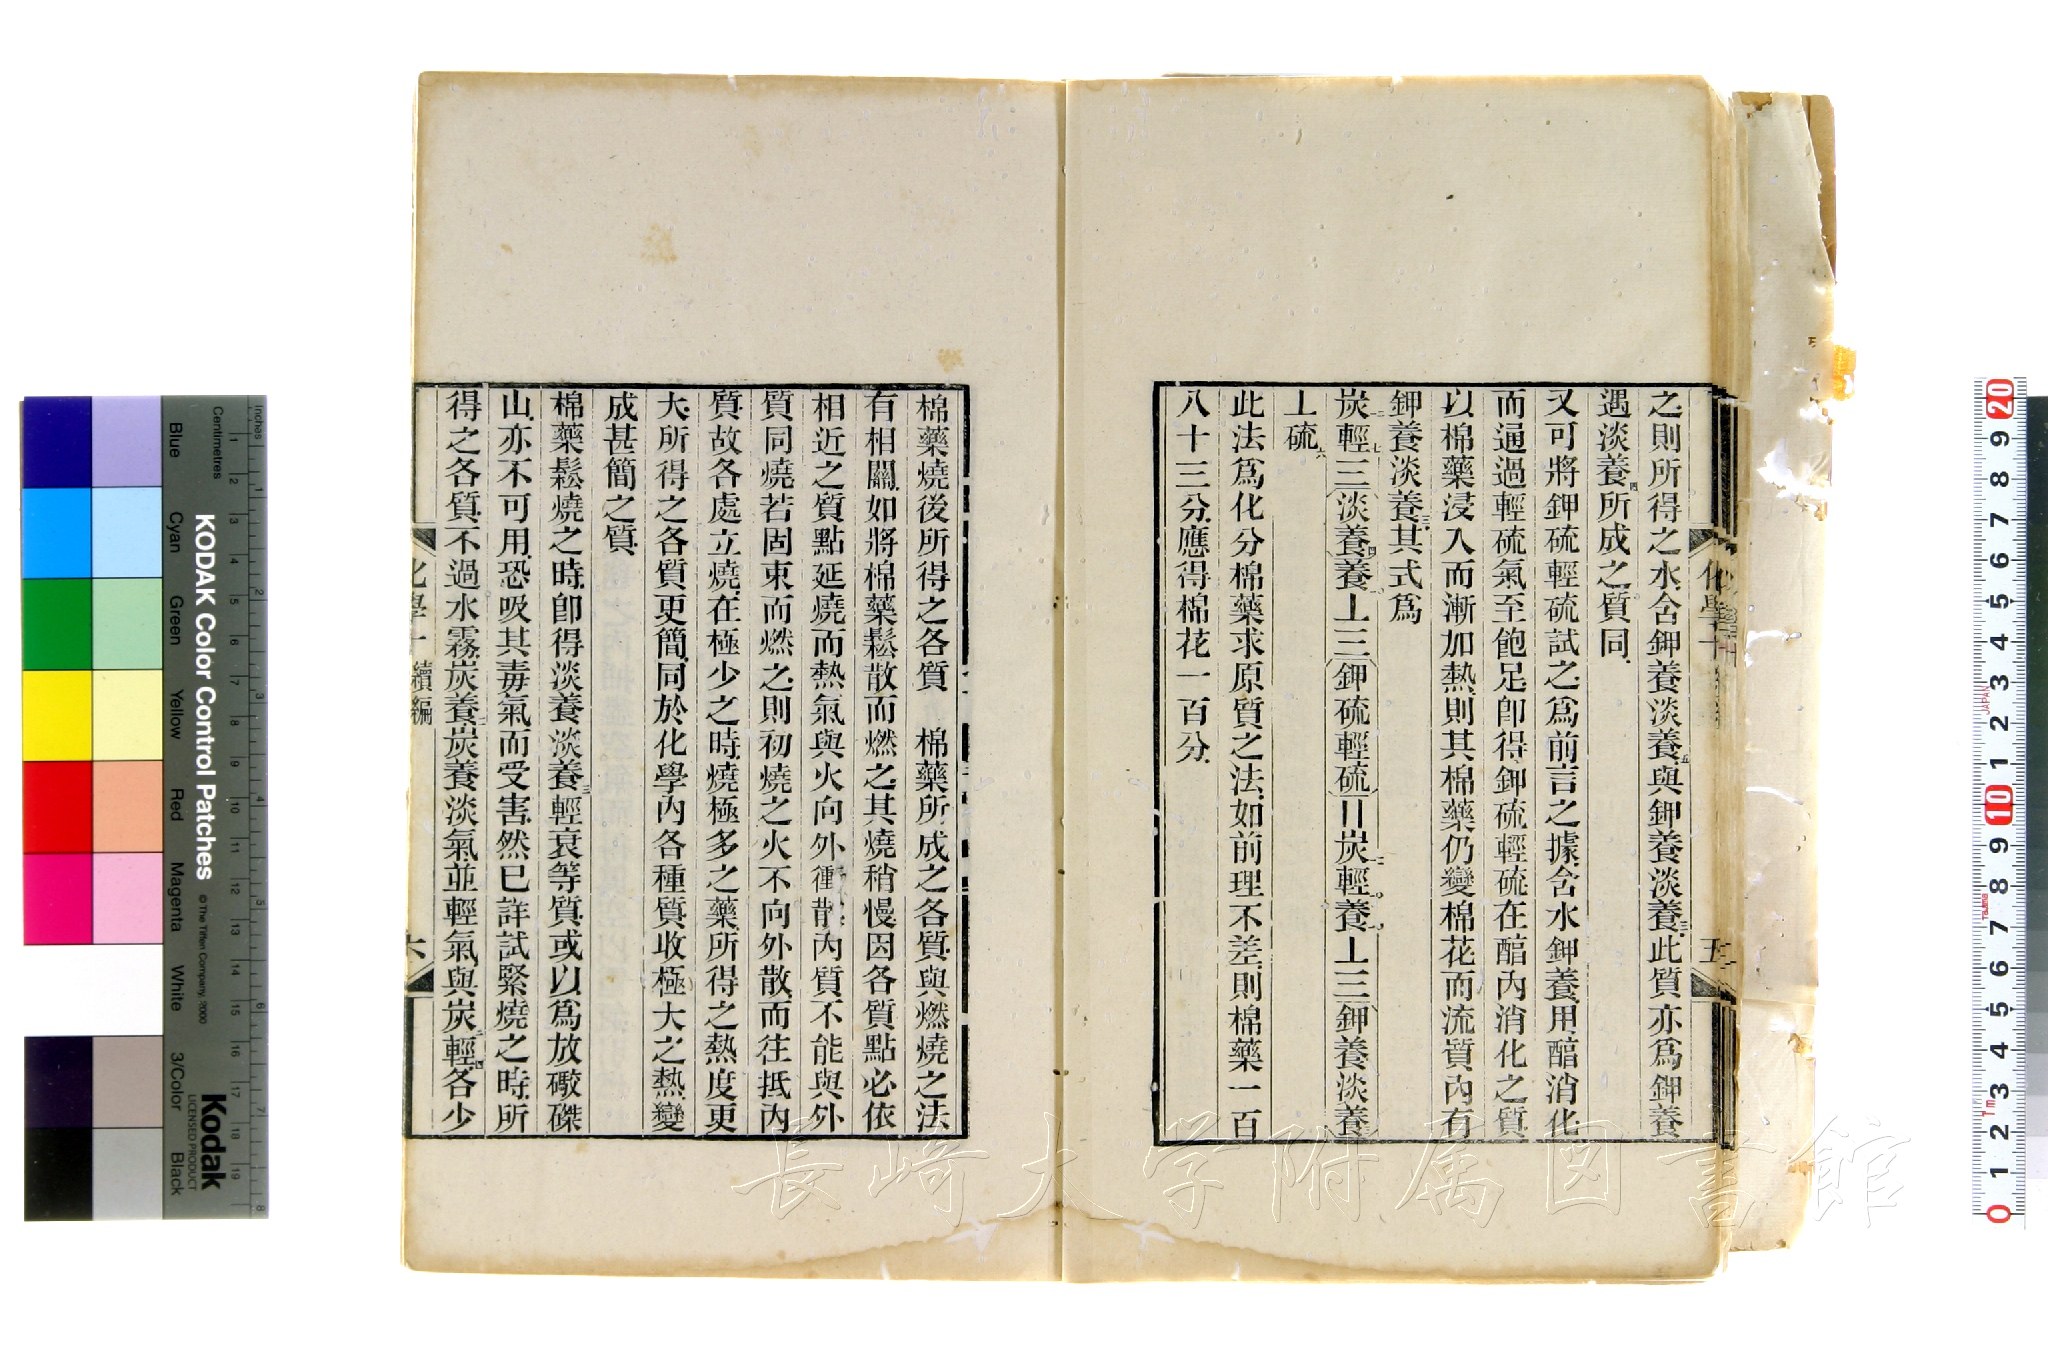 之則所得之水含鉀養淡養五與鉀養淡養三此質亦爲鉀養
遇淡養四所成之質同
又可將鉀硫輕硫試之爲前言之據含水鉀養用醕消化
而逼過輕硫氣至飽足卽得鉀硫輕硫在醕內消化之質
以棉藥浸入而漸加熱則其棉藥仍變棉花而流質內有
鉀養淡養三其式爲
炭輕三淡養四養丄三鉀硫輕硫〢炭輕養丄三鉀養淡養
丄硫六
此法爲化分棉藥求原質之法如前理不差則棉藥一百
八十三分應得棉花一百分
化學十
五
棉藥燒後所得之各質 棉藥所成之各質與燃燒之法
有相關如將棉藥鬆散而燃之其燒稍慢因各質點必依
相近之質點延燒而熱氣與火向外衝散內質不能與外
質同燒若固束而燃之則初燒之火不向外散而往抵內
質故各處立燒在極少之時燒極多之藥所得之熱度更
大所得之各質更簡同於化學內各種質收極大之熱變
成甚簡之質
棉藥鬆燒之時卽得淡養淡養三輕衰等質或以爲放礮磔
山亦不可用恐吸其毒氣而受害然已詳試緊燒之時所
得之各質不過水霧炭養二炭養淡氣並輕氣與炭二輕四各少
化學十續編
六
KODAK Color Control Patches
© The Tiffen Company, 2000
Kodak
LICENSED PRODUCT
Inches
Centimetres
Blue
Cyan
Green
Yellow
Red
Magenta
White
3/Color
Black
長崎大学附属図書館